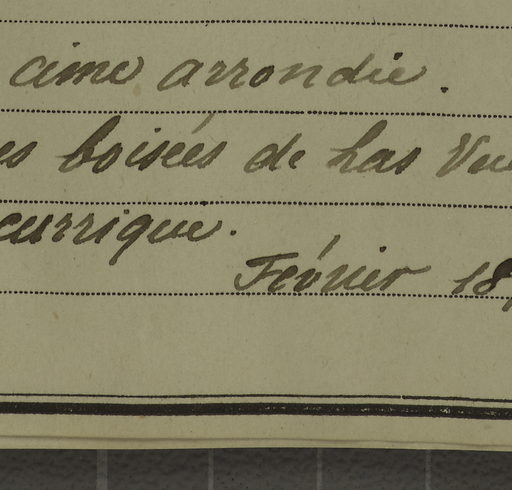 cime arrondie.
es boisées de Las Vue
currique.
Février 18